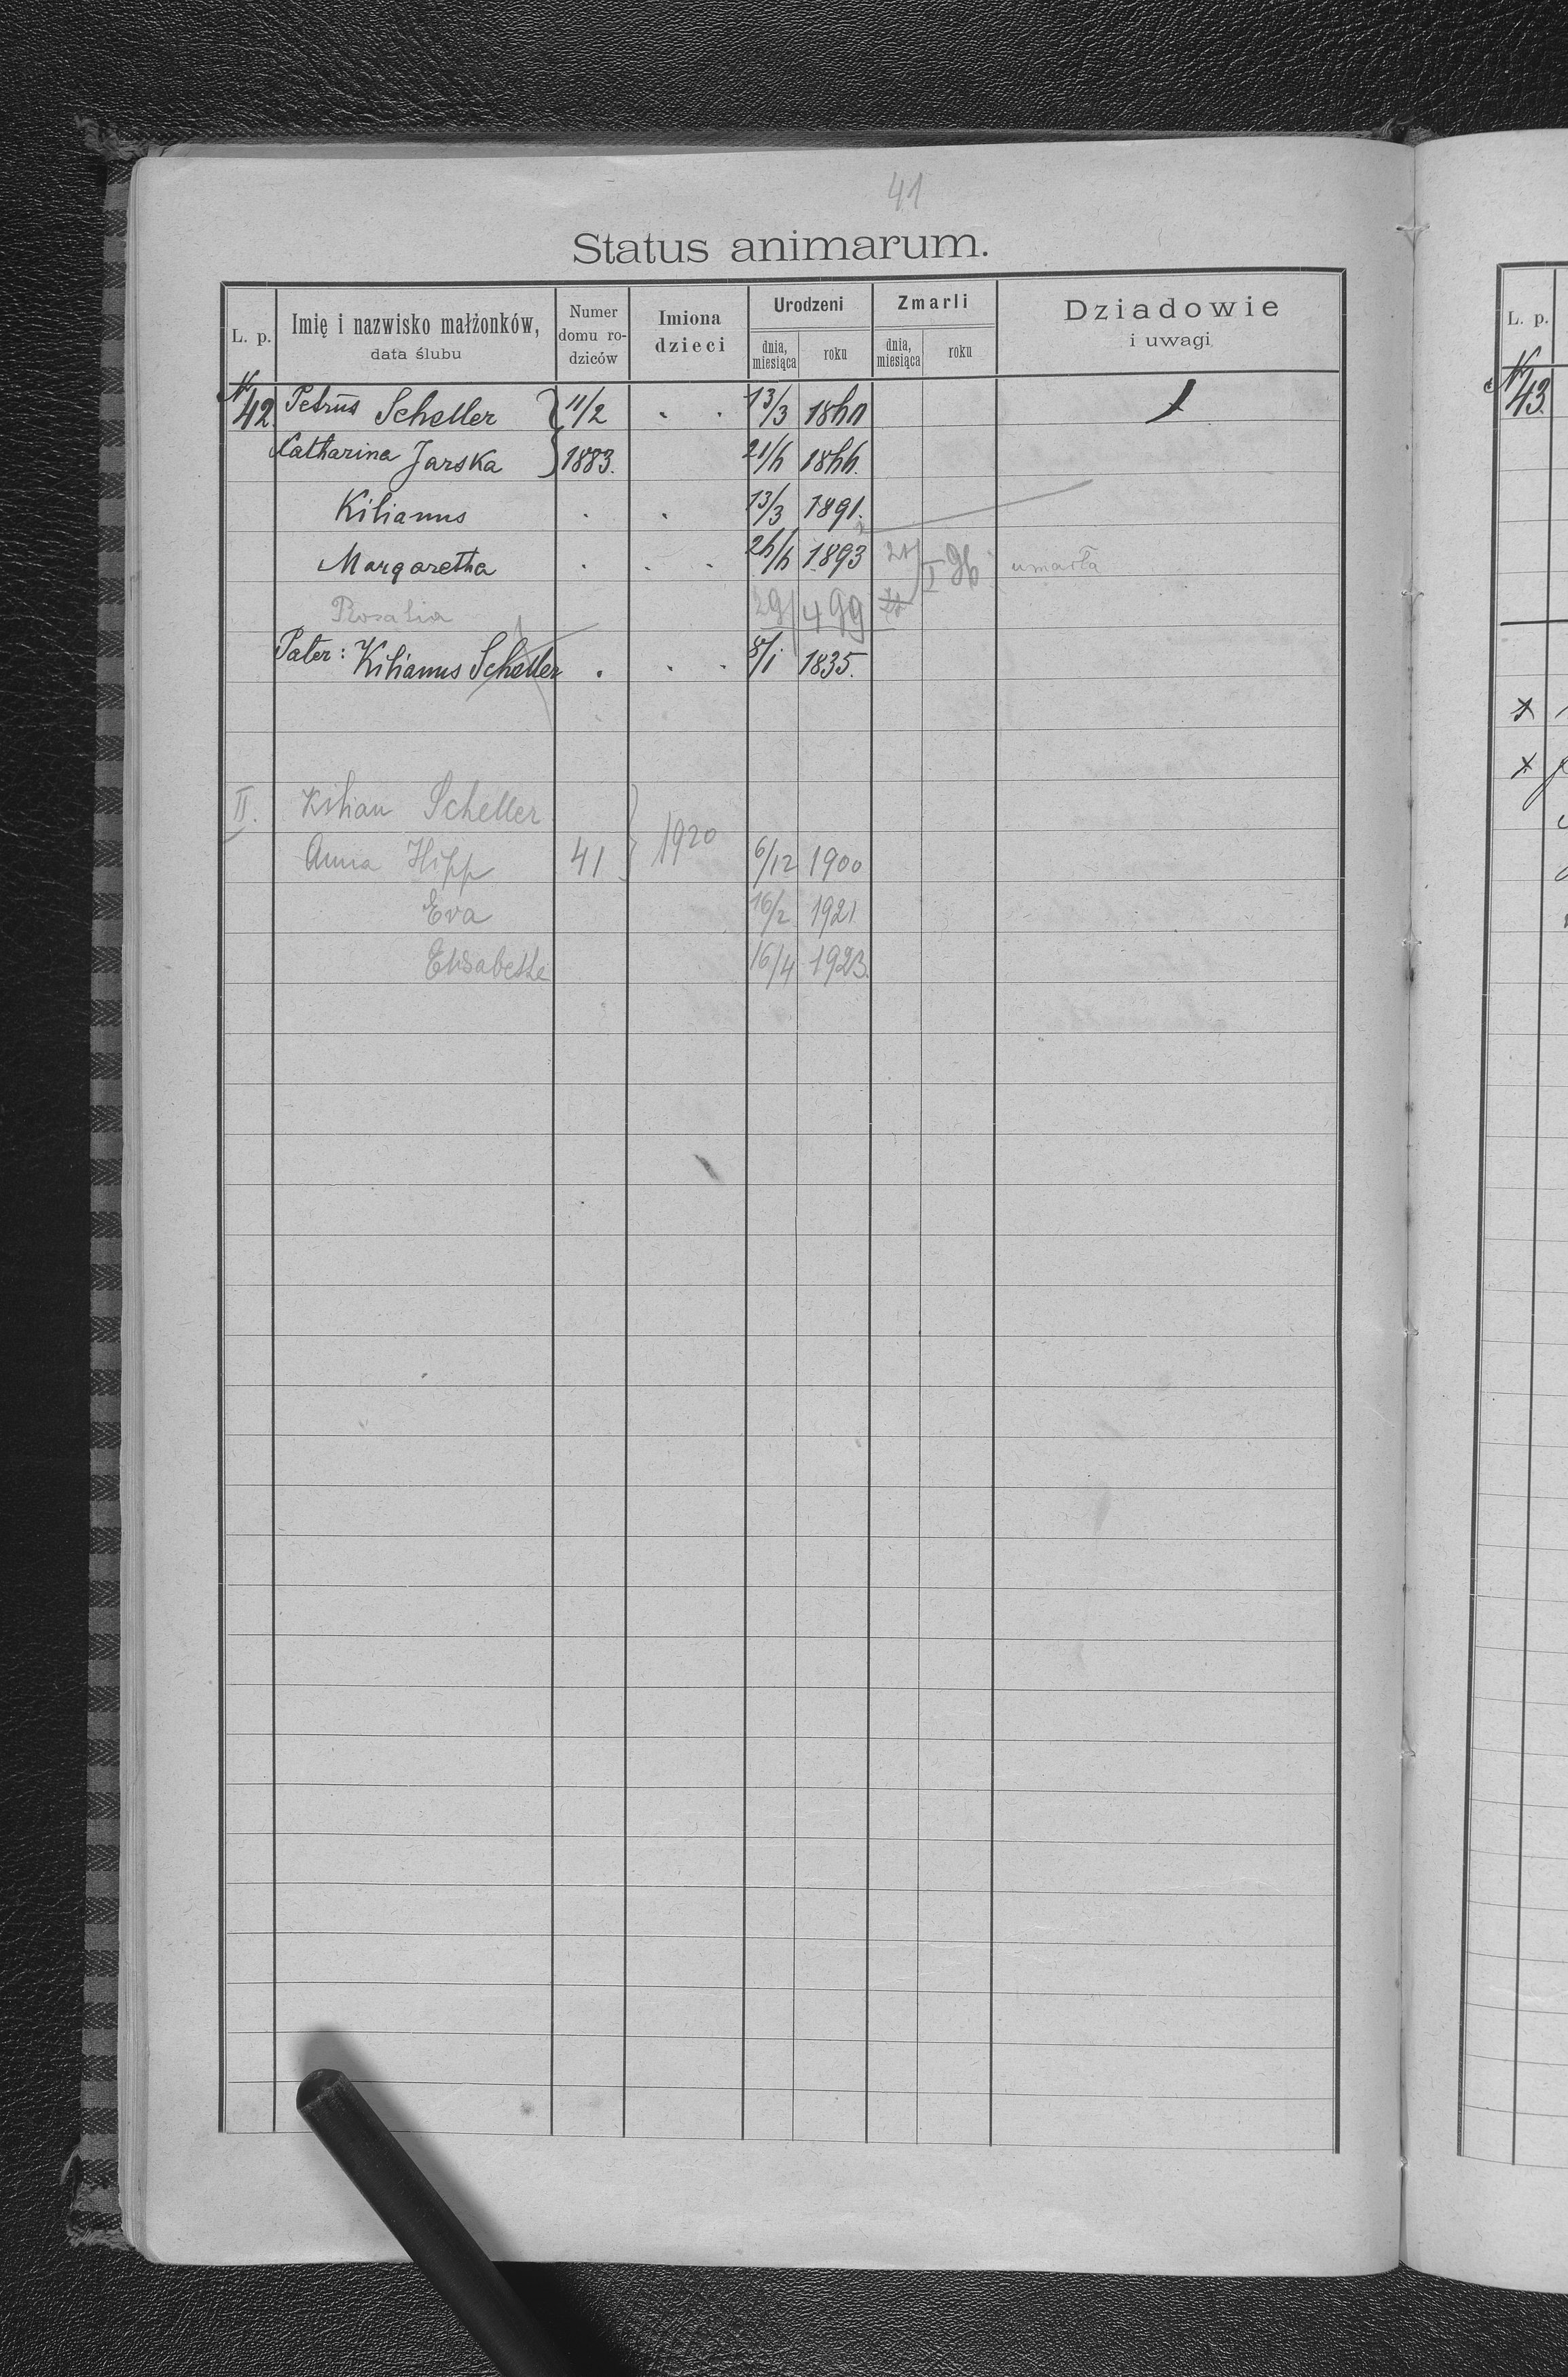 41
Status animarum.
L. p. Imię i nazwisko małżonków, data ślubu Numer domu rodziców Imiona dzieci Urodzeni dnia, miesiąca roku Zmarli dnia, miesiąca roku Dziadowie i uwagi
N 42 Petrus Scheller 11/2 13/3 1860
Catharina Jarska 1883. 21/6 1866.
Kilianus 13/3 1891.
Margaretha 26/6 1893 21/I 96 umarła
Rosalia 29/4 99
Pater: Kilianus Scheller 8/1 1835.
II. Kilian Scheller
Anna Hipp 41 1920 6/12 1900
Eva 16/2 1921
Elisabetha 16/4 1923.
L. p.
N 43.